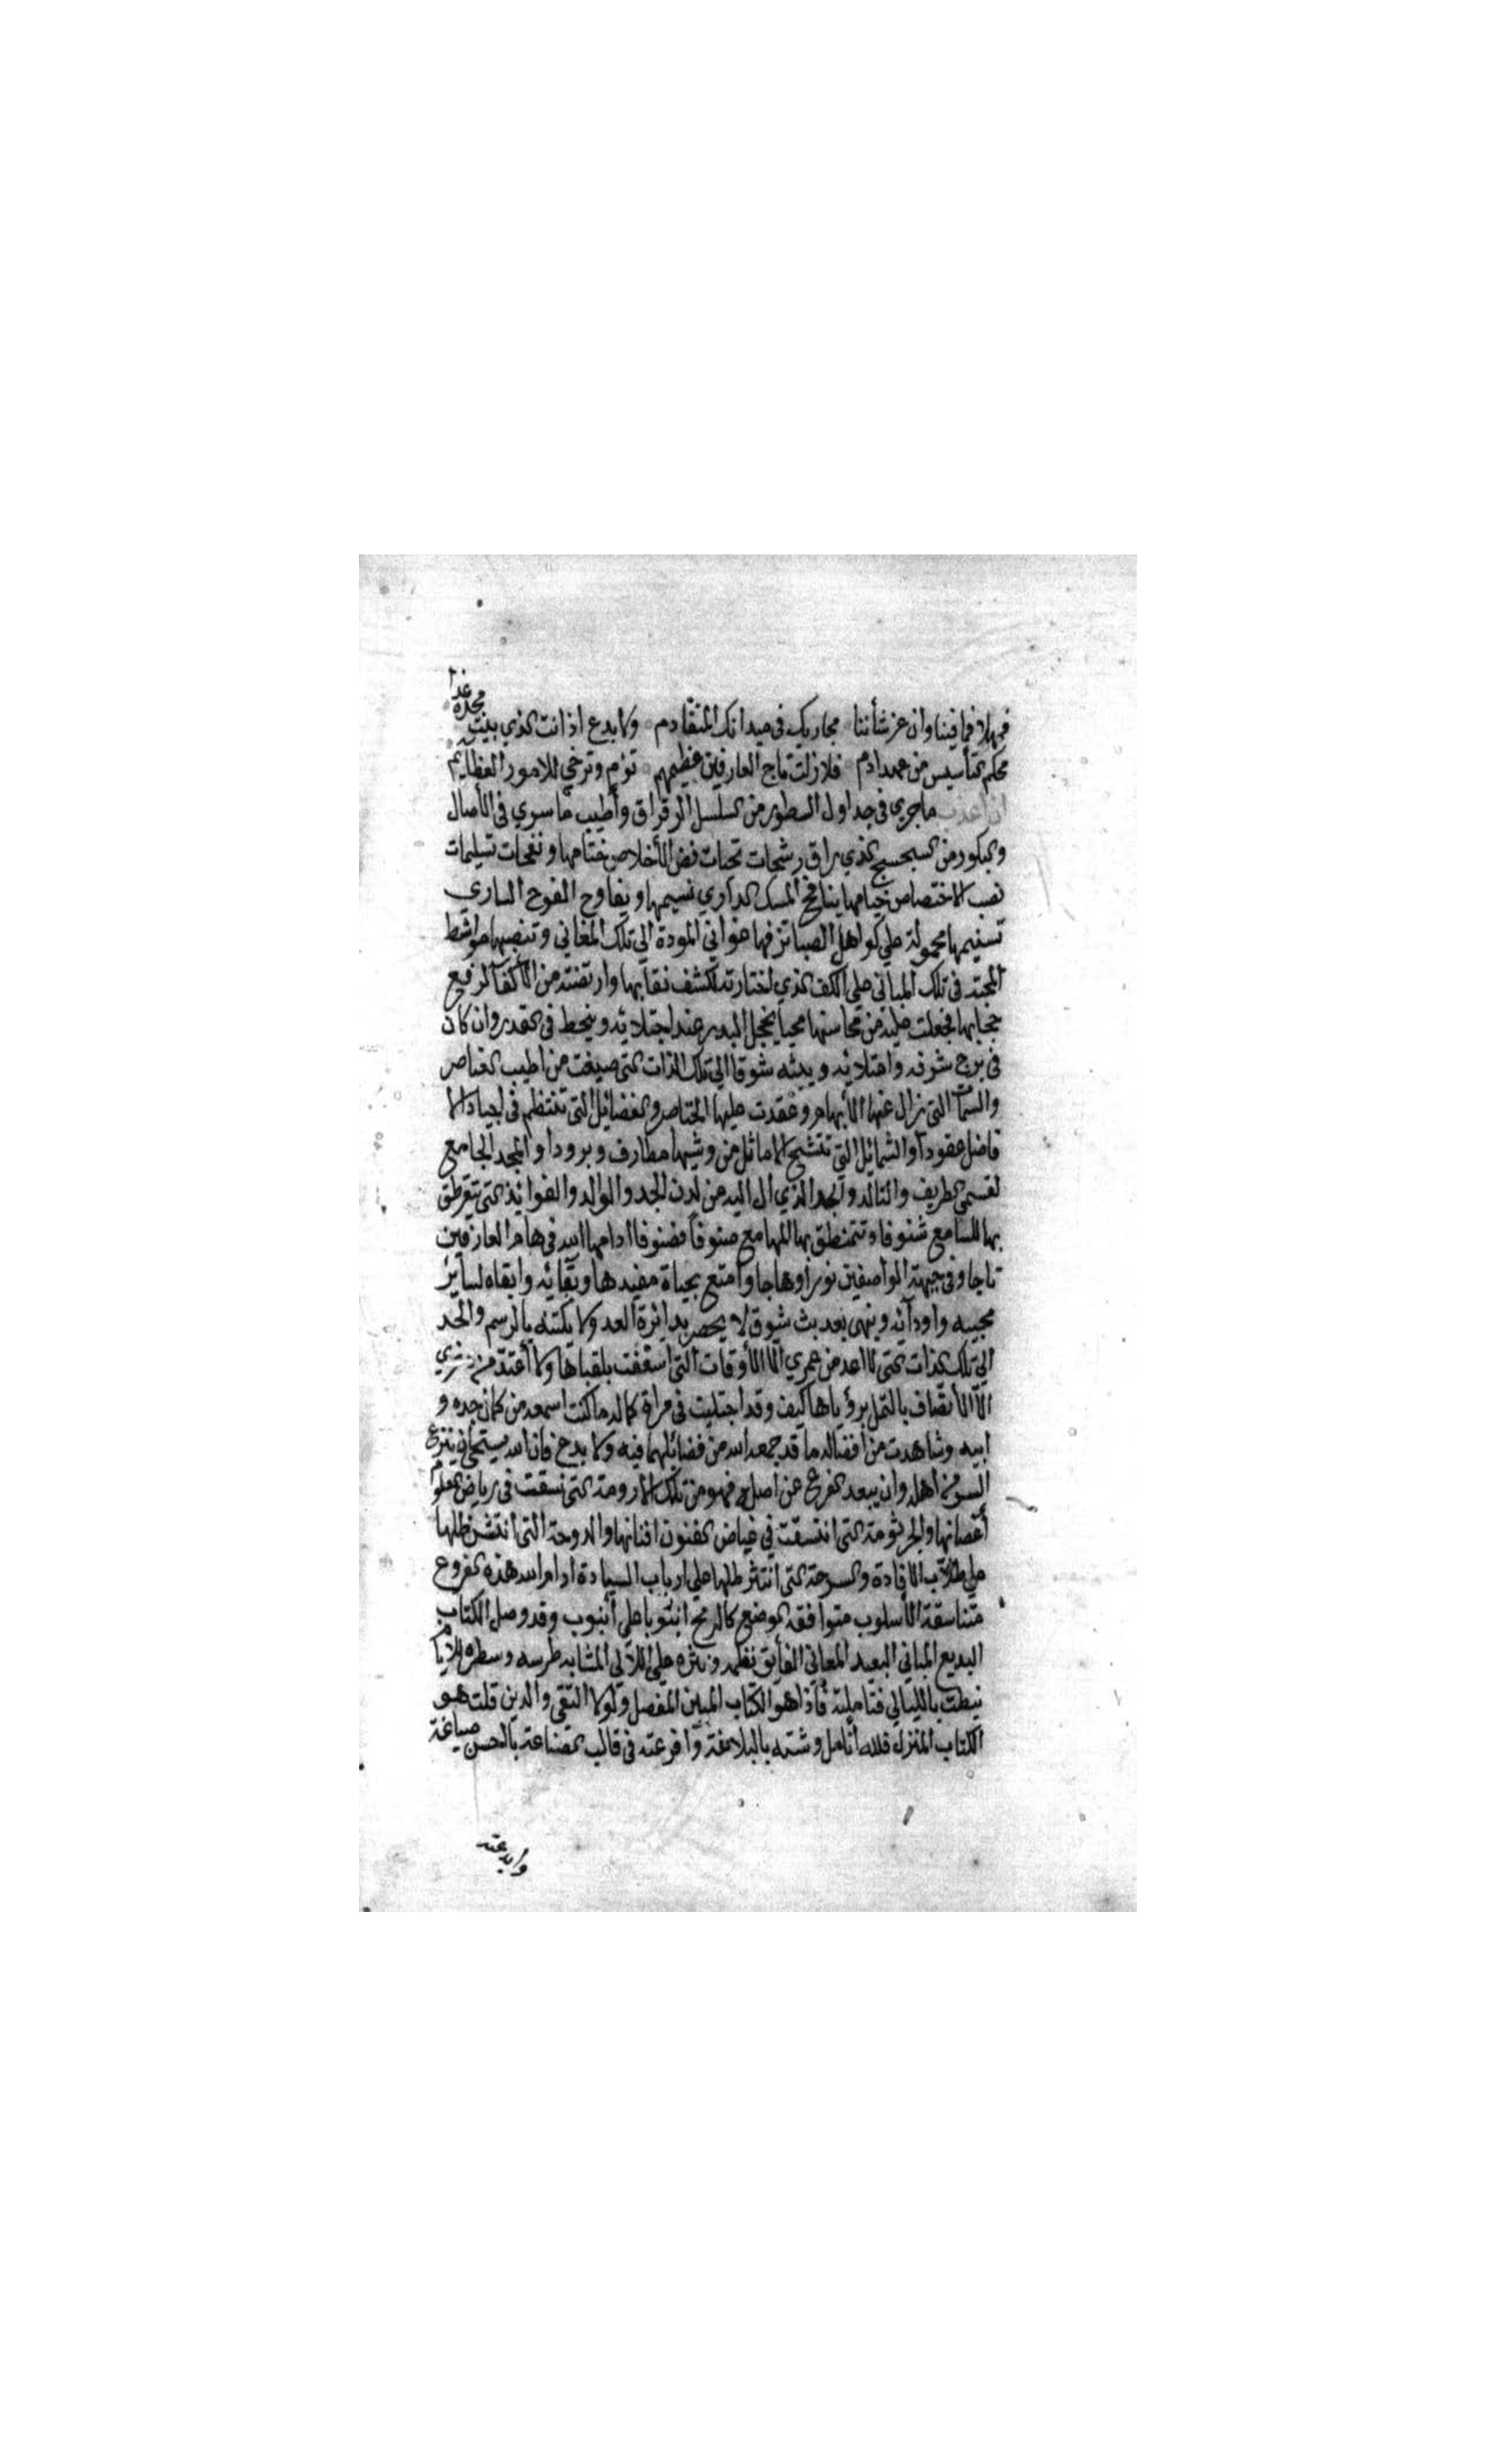 فمهلا فما فينا وان عز شأننا مجاريك في ميدانك المتقادم ولا بدع اذ انت الذي بيت مجده غدا
محكم التأسيس من عهد ادم فلا زلت تاج العارفين عظيمهم تؤم وترجي للامور العظايم
ان اعذب ما جرى في جداول السطور من السلسل الرقراق وأطيب ما سري في الأصال
والبكور من السجسج الذي راق رشحات تحيات فض الأخلاص ختامها ونفحات تسليمات
نصب الاختصاص خيامها ينافح المسك الداري نسيمها ويفاوح الفوح الساري
تسنيمها محمولة علي كواهل الصبا تزفها غواني المودة الي تلك المغاني وتنصبها مواشط
المحتد في تلك المباني علي الكف الذي اختارته لكشف نقابها وارتضته من الأكفآ لرفع
حجابها فجعلت عليه من محاسنها محيا يخجل البدر عند اجتلائه وينحط في القدر وان كان
في برج شرفه واعتلائه ويبثه شوقا الي تلك الذات التي صيغت من اطيب العناصر
والسمات التي زال عنها الأبهام وعقدت عليها الخناصر والفضائل التي تنتظم في اجياد الا
فاضل عقودآ والشمائل التي تتشح الاماثل من وشيها مطارف وبرودا والمجد الجامع
لقسمي الطريف والتالد والحمد الذي آل اليه من لدن الجد والوالد والفوائد التي تتقرط
بها المسامع شنوفا وتتمنطق بها المهامع صنوفا فصنوفا ادامها الله في هام العارفين
تاجا وفي جبهة الواصفين نورا وهاجا وامتع بحياة مفيدها وبقائه وابقاه لسآئر
محبيه واودآئه وينهي بعد بث شوق لا يحصر بدائرة العد ولا يكتنه بالرسم والحد
الي تلك الذات التي لا اعد من عمري الا الأوقات التي اسعفت بلقياها ولا أعتد من
الآ الأتصاف بالتملي برؤياها كيف وقد اجتليت في مراة كماله ما كنت اسمعه من كمال جده و
ابيه وشاهدت من افضاله ما قد جمعه الله من فضائلهما فيه ولا بدع فان الله يستحي ان ينزع
السر من اهله وان يبعد الفرع عن اصله فهو من تلك الارومة التي نسقت في رياض العلوم
أغصانها والجرثومة التي انتسقت في غياض الفنون افنانها والدوحة التي انتشر ظلها
علي طلاب الافادة والسرحة التي انتثر طلها علي ارباب السيادة ادام الله هذه الفروع
متناسقة الأسلوب متوافقة الوضع كالرمح انبوبا علي أنبوب وقد وصل الكتاب
البديع المباني البعيد المعاني الفآيق نظمه ونثره علي اللآلي المشابه طرسه وسطره للأيام
نيطت بالليالي فتأملته فأذا هو الكتاب المبين المفصل ولولا التقي والدين قلت هو
الكتاب المنزل فلله أنامل وشته بالبلاغة وأفرغته في قالب الصناعة بالحسن صياغة
وابدعته